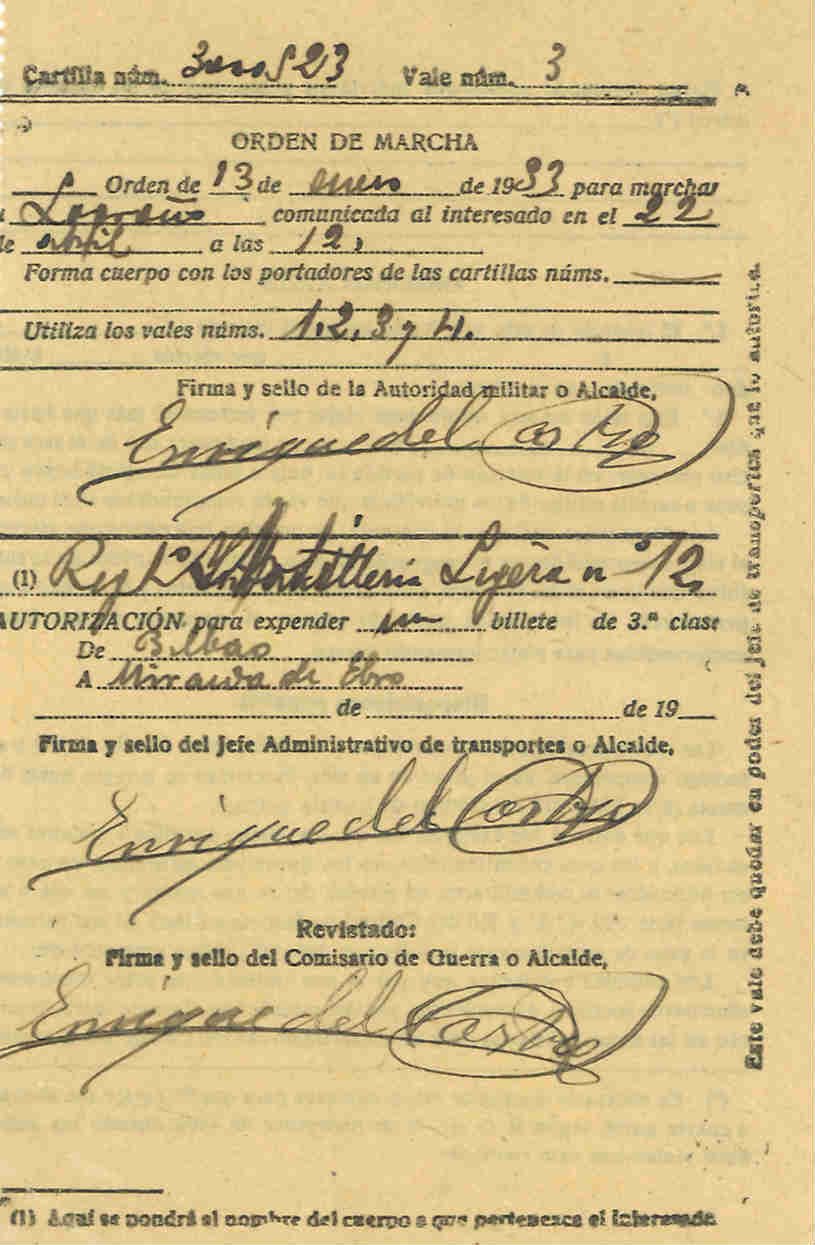 Cartilla núm. 523 Vale núm. 3
ORDEN DE MARCHA
Orden de 13 de enero de 1933 para marchar
Logroño comunicada al interesado en el 22
de abril a las 12,
Forma cuerpo con los portadores de las cartillas núms.
Utiliza los vales núms. 1, 2, 3 y 4.
Firma y sello de la Autoridad militar o Alcalde,
Enrique del Castro
(1) Regto Artilleria Ligera nº 12,
AUTORIZACIÓN para expender un billete de 3.ª clase
De Bilbao
A Miranda de Ebro
de de 19
Firma y sello del Jefe Administrativo de transportes o Alcalde,
Enrique del Castro
Revistado:
Firma y sello del Comisario de Guerra o Alcalde,
Enrique del Castro
(1) Aquí se pondrá el nombre del cuerpo a que pertenezca el interesado
Este vale debe quedar en poder del jefe de transportes que lo autoriza.